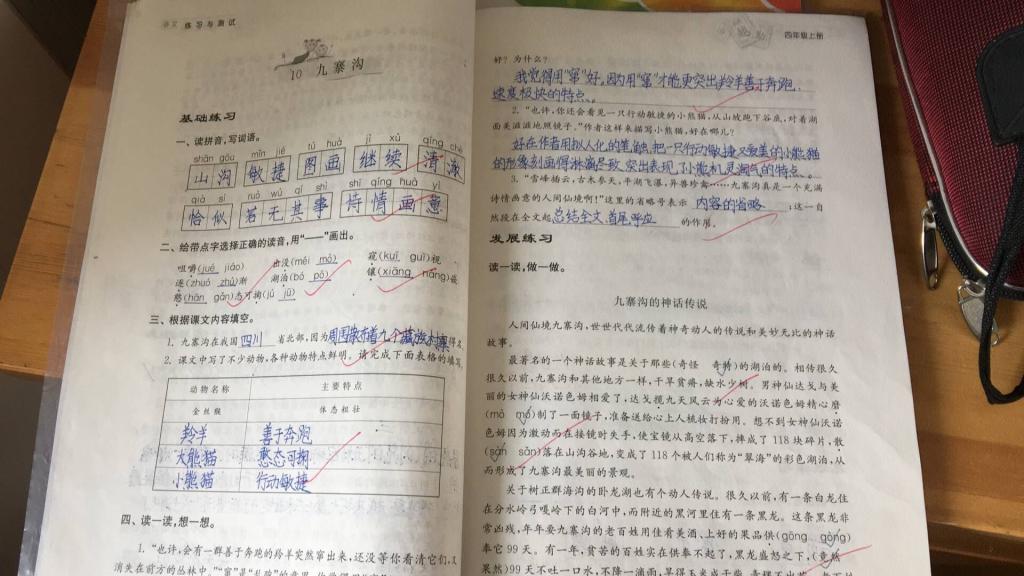 语文 练习与测试
10 九寨沟
基础练习
一、读拼音,写词语。
shān gōu mǐn jié tú huà jì xù qīng chè
山沟 敏捷 图画 继续 清澈
qià sì ruò wú qí shì shī qíng huà yì
恰似 若无其事 诗情画意
二、给带点字选择正确的读音,用“——”画出。
咀嚼(jué jiáo) 出没(méi mò) 窥(kuī guī)视
逐(zhuó zhú)渐 湖泊(bó pō) 镶(xiāng náng)嵌
憨(hān gǎn)态可掬(jú jū)
三、根据课文内容填空。
1. 九寨沟在我国 四川 省北部,因为周围散布着九个藏族村寨得名。
2. 课文中写了不少动物,各种动物特点鲜明。请完成下面表格的填写。
动物名称 主要特点
金丝猴 体态粗壮
羚羊 善于奔跑
大熊猫 憨态可掬
小熊猫 行动敏捷
四、读一读,想一想。
1. “也许,会有一群善于奔跑的羚羊突然窜出来,还没等你看清它们,又
消失在前方的丛林中。”“窜”是“乱跑”的意思
四年级上册
好?为什么?
我觉得用“窜”好,因为用“窜”才能更突出羚羊善于奔跑,
速度极快的特点。
2. “也许,你还会看见一只行动敏捷的小熊猫,从山坡跑下谷底,对着湖
面美滋滋地照镜子。”作者这样来描写小熊猫,好在哪儿?
好在作者用拟人化的笔触,把一只行动敏捷又爱美的小熊猫
的形象刻画得淋漓尽致,突出表现了小熊机灵淘气的特点。
3. “雪峰插云,古木参天,平湖飞瀑,异兽珍禽……九寨沟真是一个充满
诗情画意的人间仙境啊!”这里的省略号表示 内容的省略 ;这一自
然段在全文起 总结全文,首尾呼应 的作用。
发展练习
读一读,做一做。
九寨沟的神话传说
人间仙境九寨沟,世世代代流传着神奇动人的传说和美妙无比的神话
故事。
最著名的一个神话故事是关于那些(奇怪 奇特)的湖泊的。相传很久
很久以前,九寨沟和其他地方一样,干旱贫瘠,缺水少树。男神仙达戈与美
丽的女神仙沃诺色姆相爱了,达戈揽九天风云为心爱的沃诺色姆精心磨
(mò mó)制了一面镜子,准备送给心上人梳妆打扮用。想不到女神仙沃诺
色姆因为激动而在接镜时失手,使宝镜从高空落下,摔成了118块碎片,散
(sàn sǎn)落在山沟谷地,变成了118个被人们称为“翠海”的彩色湖泊,从
而形成了九寨沟最美丽的景观。
关于树正群海沟的卧龙湖也有个动人传说。很久以前,有一条白龙住
在分水岭弓嘎岭下的白河中,而附近的黑河里住有一条黑龙。这条黑龙非
常凶残,年年要九寨沟的老百姓用住着美酒、上好的果品供(gōng gòng)
奉它99天。有一年,贫苦的百姓实在供奉不起了,黑龙盛怒之下,(竟然
果然)99天不吐一口水,不降一滴雨,旱得玉米成干柴